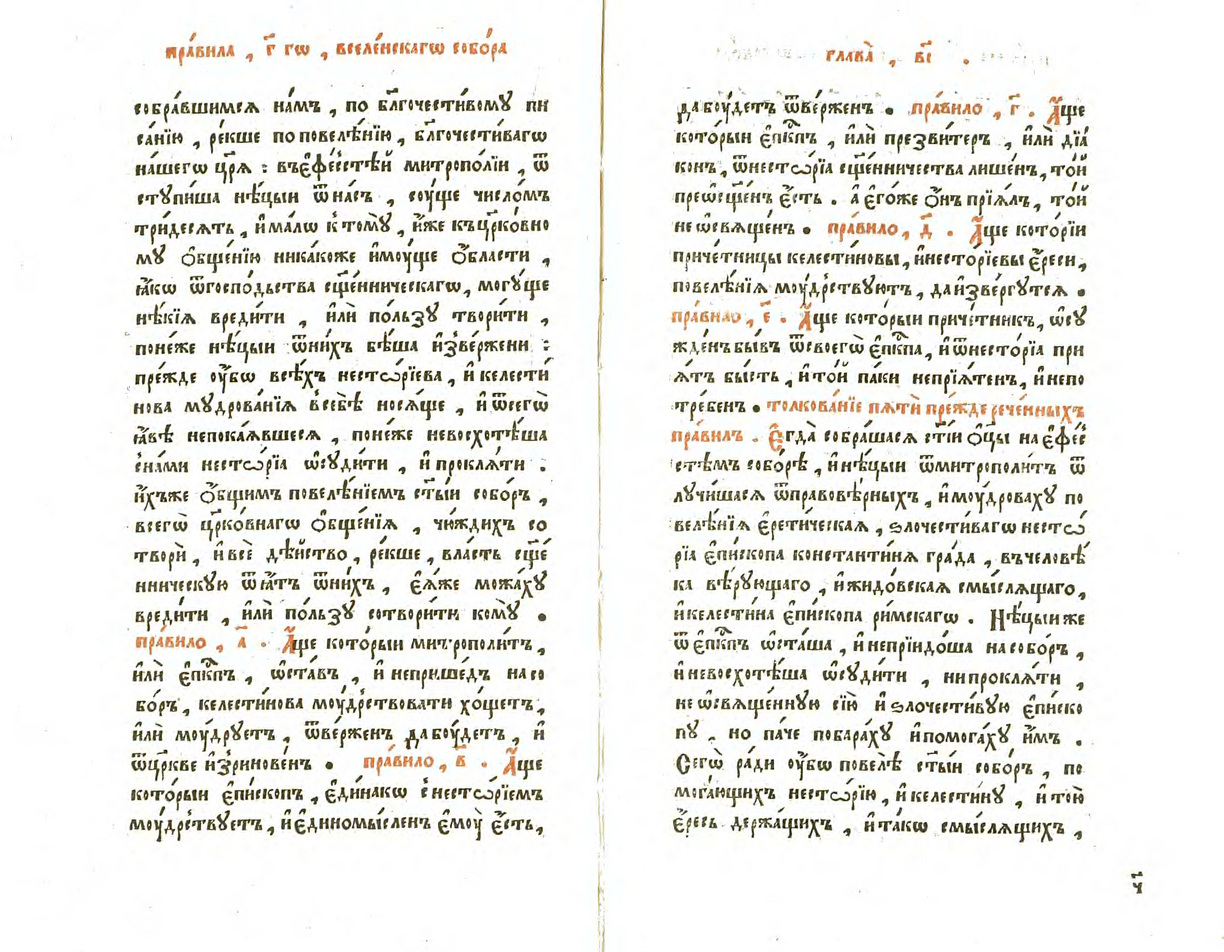 пра́вила , г҃ гѡ , вселе́нскагѡ собо́ра
собра́вшимсѧ на́мъ , по бл҃гочести́вомꙋ пи
са́нїю , ре́кше по повелѣ́нїю , бл҃гочести́вагѡ
на́шегѡ цр҃ѧ : въ є҆фе́сстѣй митропо́лїи , ѿ
ступи́ша нѣ́цыи ѿ на́съ , со́уще число́мъ
три́десѧть , и҆ ма́лѡ к то́мꙋ , и҆́же къ цр҃ко́вно
мꙋ ѻ҆бще́нїю ника́коже и҆мо́ꙋще ѻ҆́бласти ,
ꙗ҆́кѡ ѿ госпо́дьства сщ҃е́нническагѡ , могꙋ́ще
нѣ́кїѧ вреди́ти , и҆лѝ по́льзꙋ твори́ти ,
поне́же нѣ́цыи ѿ ни́хъ бѣ́ша и҆зве́ржени :
пре́жде оу҆́бѡ всѣ́хъ несто́рїева , и҆ келести́
нова мꙋдрова́нїѧ в себѣ̀ носѧ́ще , и҆ ѿ сегѡ̀
ꙗ҆́вѣ непока́ѧвшесѧ , поне́же не восхотѣ́ша
с на́ми несто́рїа ѡ҆сꙋди́ти , и҆ проклѧ́ти :
и҆́хъже ѻ҆́бщимъ повелѣ́нїемъ ст҃ы́и собо́ръ ,
всегѡ̀ цр҃ко́внагѡ ѻ҆бще́нїѧ , чю́ждихъ со
творѝ , и҆ всѐ дѣ́йство , ре́кше , вла́сть сщ҃е́
нническꙋю ѿѧ́тъ ѿ ни́хъ , є҆ѧ́же можа́хꙋ
вреди́ти , и҆лѝ по́льзꙋ сотвори́ти комꙋ̀ .
пра́вило , а҃ . А҆́ще кото́рыи митрополи́тъ ,
и҆лѝ є҆пк҃пъ , ѡ҆ста́въ , и҆ не прише́дъ на со
бо́ръ , келести́нова моу́дрствовати хо́щетъ ,
и҆лѝ моу́дрꙋетъ , ѿве́рженъ да бо́удетъ , и҆
ѿ цр҃кве и҆зринове́нъ . пра́вило , в҃ . А҆́ще
кото́рыи є҆пи́скопъ , є҆ди́накѡ с несто́рїемъ
моу́дрствꙋетъ , и҆ є҆диномы́сленъ є҆мо́у є҆́сть ,
глава̀ , в҃і .
да бо́удетъ ѿве́рженъ . пра́вило , г҃ . А҆́ще
кото́рыи є҆пк҃пъ , и҆лѝ презви́теръ , и҆лѝ дїа́
конъ , ѿ несто́рїа сщ҃е́нничества лише́нъ , то́й
преѡсщ҃е́нъ є҆́сть . а є҆го́же ѻ҆́нъ прїѧ́лъ , то́й
не ѡ҆свѧще́нъ . пра́вило , д҃ . А҆́ще кото́рїи
приче́тницы келести́новы , и҆ несто́рїевы є҆́реси ,
повелѣ́нїѧ моу́дрствꙋютъ , да и҆зве́ргꙋтсѧ .
пра́вило , є҃ . А҆́ще кото́рыи приче́тникъ , ѡ҆сꙋ
жде́нъ бы́въ ѿ своегѡ̀ є҆пк҃па , и҆ ѿ несто́рїа при
ѧ́тъ бы́сть , и҆ то́й па́ки непрїѧ́тенъ , и҆ непо
тре́бенъ . толкова́нїе пѧти́ пре́жде рече́нныхъ
пра́вилъ . Є҆гда̀ собра́шасѧ ст҃і́и ѻ҆ц҃ы̀ на є҆фе́с
стѣмъ собо́рѣ , и҆ нѣ́цыи ѿ митрополи́тъ ѿ
лꙋчи́шасѧ ѿ правовѣ́рныхъ , и҆ моу́дровахꙋ по
велѣ́нїѧ є҆рети́ческаѧ , ѕлочести́вагѡ несто́
рїа є҆пи́скопа константи́нѧ гра́да , въ человѣ́
ка вѣ́рꙋющаго , и҆ жидо́вскаѧ смы́слѧщаго ,
и҆ келести́на є҆пи́скопа ри́мскагѡ . Нѣ́цыи же
ѿ є҆пк҃пъ ѡ҆ста́ша , и҆ не прїидо́ша на собо́ръ ,
и҆ не восхотѣ́ша ѡ҆сꙋди́ти , ни проклѧ́ти ,
не ѡ҆свѧще́ннꙋю сїю̀ и҆ ѕлочести́вꙋю є҆пи́ско
пꙋ . но па́че побара́хꙋ и҆ помога́хꙋ и҆̀мъ .
Сегѡ̀ ра́ди оу҆́бѡ повелѣ̀ ст҃ы́и собо́ръ , по
мога́ющихъ несто́рїю , и҆ келести́нꙋ , и҆ то́ю
є҆́ресь держа́щихъ , и҆ та́кѡ смы́слѧщихъ ,
ч҃